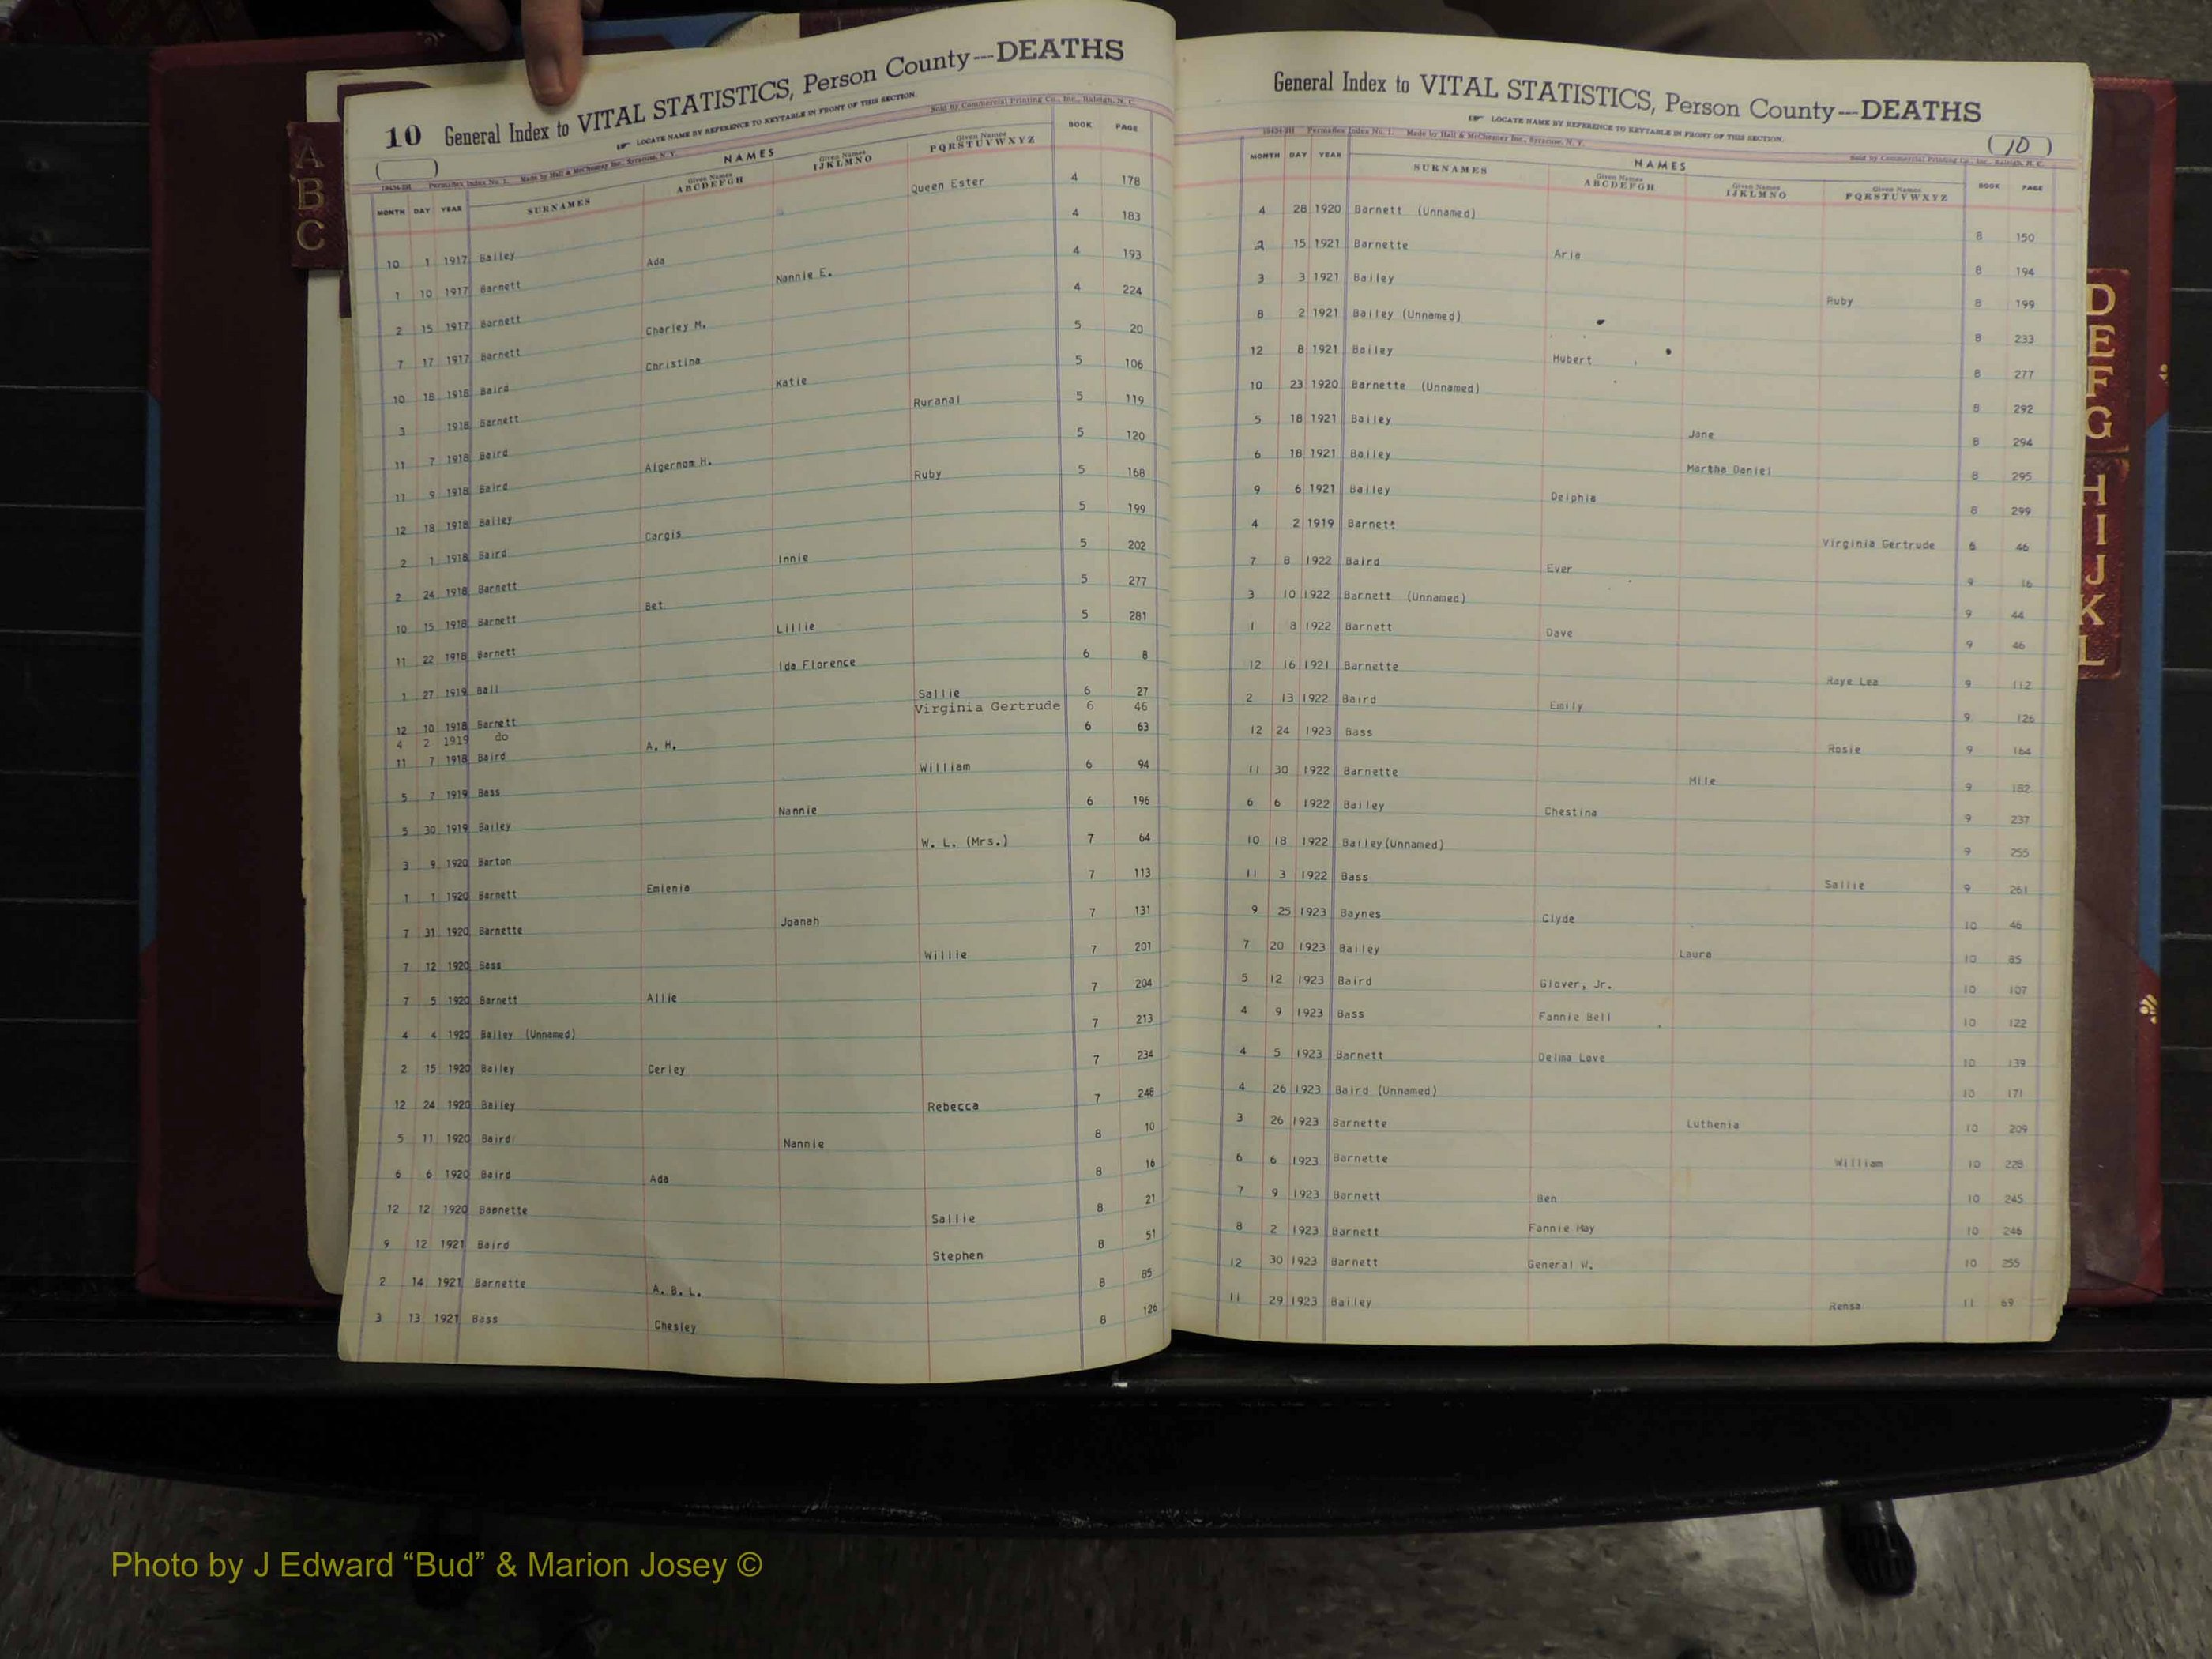 10 General Index to VITAL STATISTICS, Person County---DEATHS
LOCATE NAME BY REFERENCE TO KEYTABLE IN FRONT OF THIS SECTION.
Permaflex Index No. 1. Made by Hall & McChesney Inc., Syracuse, N. Y. Sold by Commercial Printing Co., Inc., Raleigh, N. C.
NAMES
MONTH DAY YEAR SURNAMES Given Names ABCDEFGH Given Names IJKLMNO Given Names PQRSTUVWXYZ BOOK PAGE
10 1 1917 Bailey Queen Ester 4 178
1 10 1917 Barnett Ada 4 183
2 15 1917 Barnett Nannie E. 4 193
7 17 1917 Barnett Charley M. 4 224
10 18 1918 Baird Christina 5 20
3 1918 Barnett Katie 5 106
11 7 1918 Baird Ruranal 5 119
11 9 1918 Baird Algernom H. 5 120
12 18 1918 Bailey Ruby 5 168
2 1 1918 Baird Cargis 5 199
2 24 1918 Barnett Innie 5 202
10 15 1918 Barnett Bet 5 277
11 22 1918 Barnett Lillie 5 281
1 27 1919 Ball Ida Florence 6 8
12 10 1918 Barnett Sallie 6 27
4 2 1919 do Virginia Gertrude 6 46
11 7 1918 Baird A. H. 6 63
5 7 1919 Bass William 6 94
5 30 1919 Bailey Nannie 6 196
3 9 1920 Barton W. L. (Mrs.) 7 64
1 1 1920 Barnett Emlenia 7 113
7 31 1920 Barnette Joanah 7 131
7 12 1920 Bass Willie 7 201
7 5 1920 Barnett Allie 7 204
4 4 1920 Bailey (Unnamed) 7 213
2 15 1920 Bailey Cerley 7 234
12 24 1920 Bailey Rebecca 7 248
5 11 1920 Baird Nannie 8 10
6 6 1920 Baird Ada 8 16
12 12 1920 Barnette Sallie 8 21
9 12 1921 Baird Stephen 8 51
2 14 1921 Barnette A. B. L. 8 85
3 13 1921 Bass Chesley 8 126
General Index to VITAL STATISTICS, Person County---DEATHS
LOCATE NAME BY REFERENCE TO KEYTABLE IN FRONT OF THIS SECTION.
(10)
Permaflex Index No. 1. Made by Hall & McChesney Inc., Syracuse, N. Y. Sold by Commercial Printing Co., Inc., Raleigh, N. C.
NAMES
MONTH DAY YEAR SURNAMES Given Names ABCDEFGH Given Names IJKLMNO Given Names PQRSTUVWXYZ BOOK PAGE
4 28 1920 Barnett (Unnamed) 8 150
2 15 1921 Barnette Aria 8 194
3 3 1921 Bailey Ruby 8 199
8 2 1921 Bailey (Unnamed) 8 233
12 8 1921 Bailey Hubert 8 277
10 23 1920 Barnette (Unnamed) 8 292
5 18 1921 Bailey Jane 8 294
6 18 1921 Bailey Martha Daniel 8 295
9 6 1921 Bailey Delphia 8 299
4 2 1919 Barnett Virginia Gertrude 6 46
7 8 1922 Baird Ever 9 16
3 10 1922 Barnett (Unnamed) 9 44
1 8 1922 Barnett Dave 9 46
12 16 1921 Barnette Raye Lea 9 112
2 13 1922 Baird Emily 9 126
12 24 1923 Bass Rosie 9 164
11 30 1922 Barnette Mile 9 182
6 6 1922 Bailey Chestina 9 237
10 18 1922 Bailey (Unnamed) 9 255
11 3 1922 Bass Sallie 9 261
9 25 1923 Baynes Clyde 10 46
7 20 1923 Bailey Laura 10 85
5 12 1923 Baird Glover, Jr. 10 107
4 9 1923 Bass Fannie Bell 10 122
4 5 1923 Barnett Delma Love 10 139
4 26 1923 Baird (Unnamed) 10 171
3 26 1923 Barnette Luthenia 10 209
6 6 1923 Barnette William 10 228
7 9 1923 Barnett Ben 10 245
8 2 1923 Barnett Fannie May 10 246
12 30 1923 Barnett General W. 10 255
11 29 1923 Bailey Rensa 11 69
A
B
C
D
E
F
G
H
I
J
K
L
Photo by J Edward “Bud” & Marion Josey ©